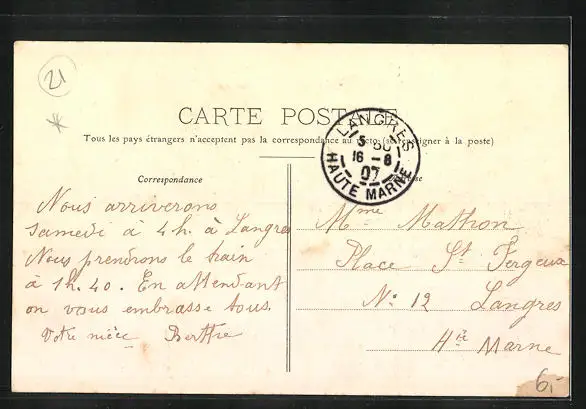 21
*
CARTE POSTALE
Tous les pays étrangers n'acceptent pas la correspondance au recto (se renseigner à la poste)
LANGRES
16 -8
07
HAUTE MARNE
Correspondance
Nous arriverons
samedi à 4h. à Langres
Nous prendrons le train
à 1h.40. En attendant
on vous embrasse tous.
Votre nièce Berthe
Mme Mathon
Place St Fergeux
No 12 Langres
Hte Marne
6,-